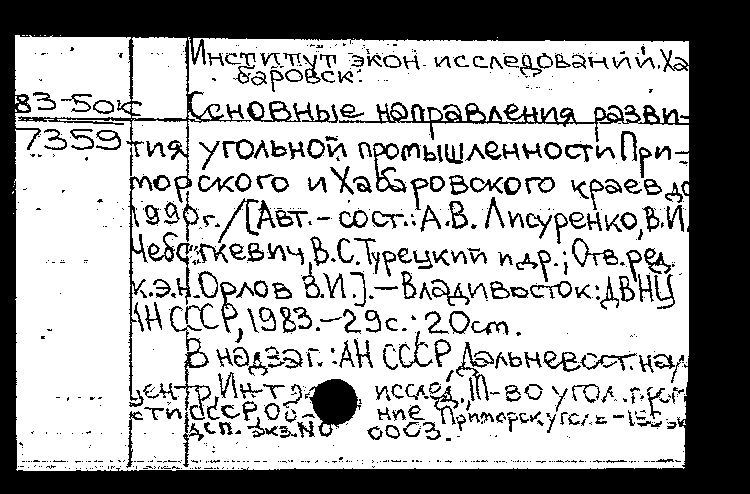 Институт экон. исследований. Ха
баровск.
83-5ок Основные направления разви-
7359 тия угольной промышленности При-
морского и Хабаровского краев до
1990г. / [Авт.- сост.: А.В. Лисуренко, В.И.
Чеботкевич, В.С. Турецкий и др.; Отв. ред.
к.э.н. Орлов В.И.].—Владивосток: ДВНЦ
АН СССР, 1983.-29с.; 20cm.
В надзаг.: АН СССР Дальневост. науч
центр, Ин-т эк исслед, М-во угол. пром
сти СССР, Об ние Приморскуголь -
дсп. экз. No 0003.